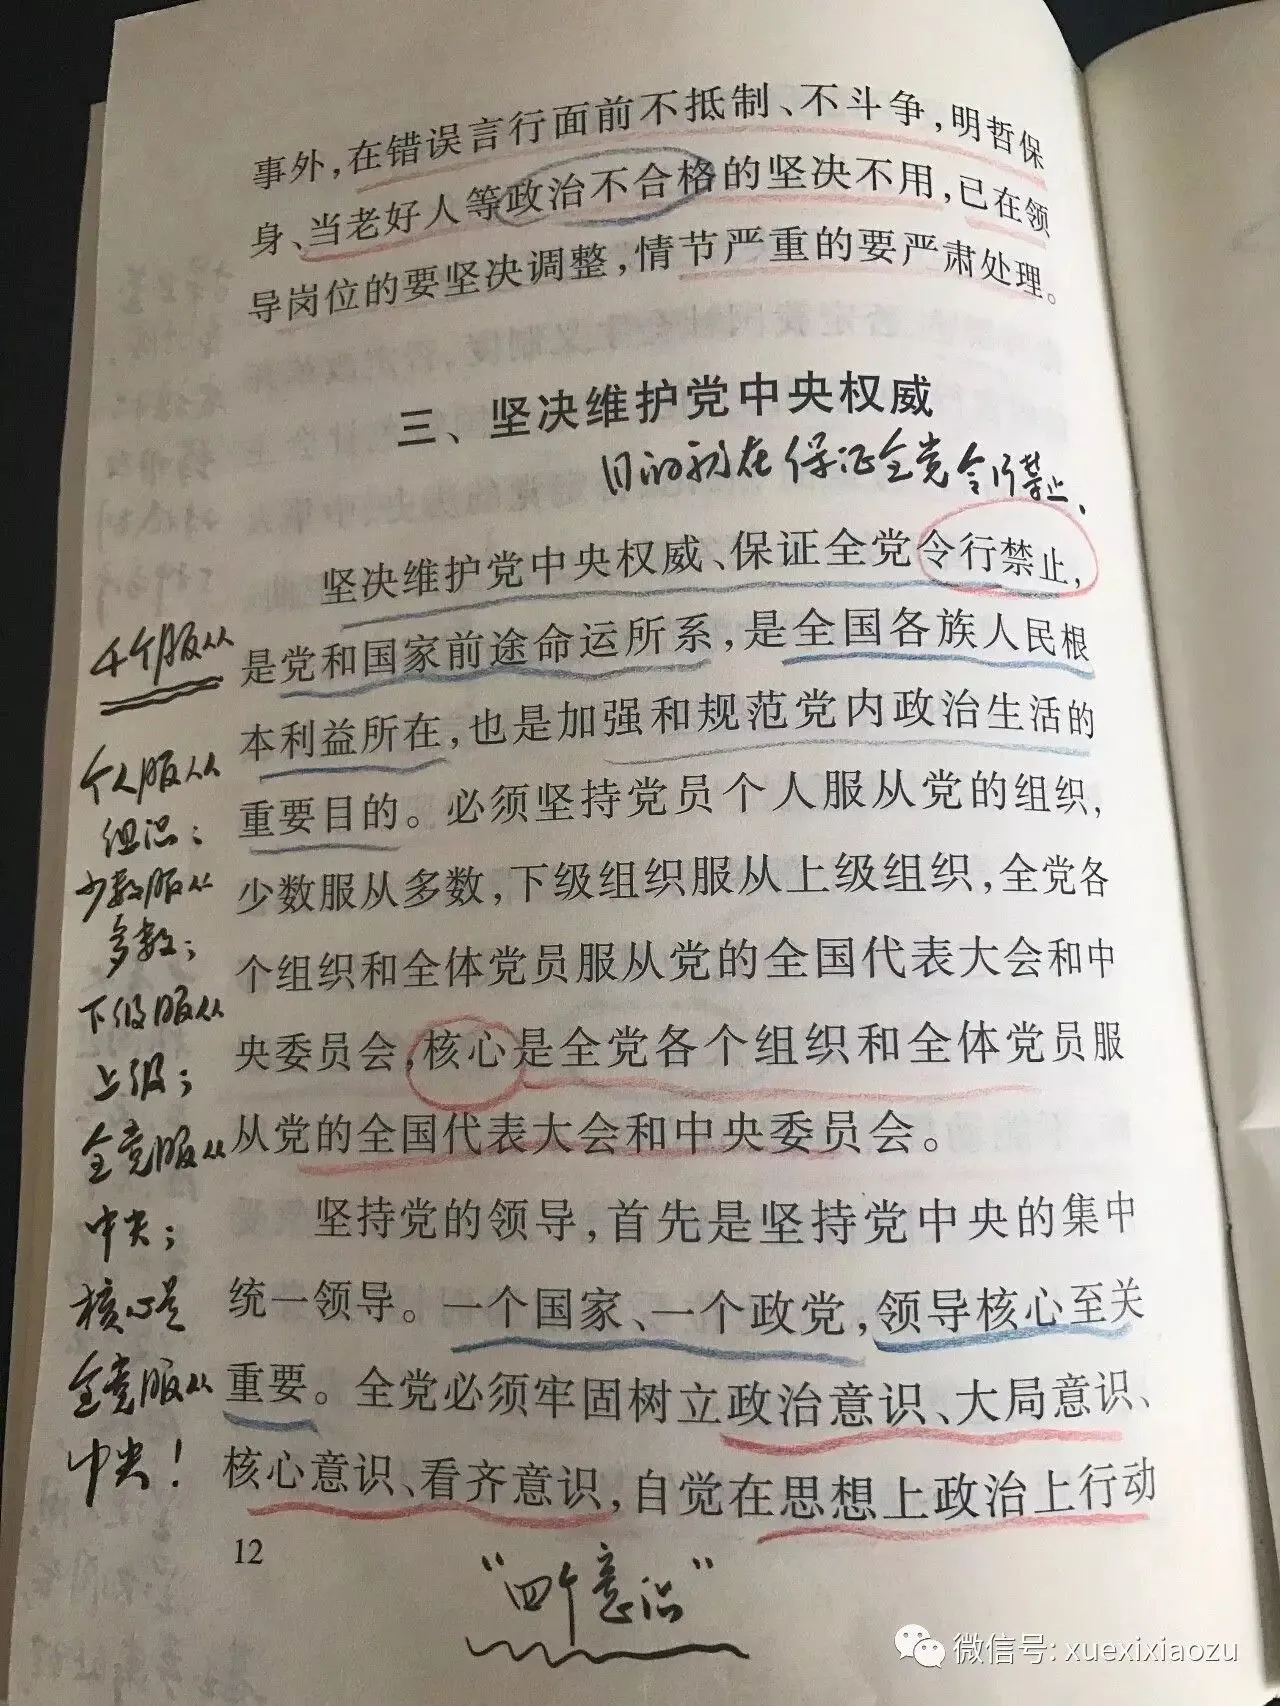 事外，在错误言行面前不抵制、不斗争，明哲保
身、当老好人等政治不合格的坚决不用，已在领
导岗位的要坚决调整，情节严重的要严肃处理。
三、坚决维护党中央权威
目的就在保证全党令行禁止、
坚决维护党中央权威、保证全党令行禁止，
是党和国家前途命运所系，是全国各族人民根
本利益所在，也是加强和规范党内政治生活的
重要目的。必须坚持党员个人服从党的组织，
少数服从多数，下级组织服从上级组织，全党各
个组织和全体党员服从党的全国代表大会和中
央委员会，核心是全党各个组织和全体党员服
从党的全国代表大会和中央委员会。
坚持党的领导，首先是坚持党中央的集中
统一领导。一个国家、一个政党，领导核心至关
重要。全党必须牢固树立政治意识、大局意识、
核心意识、看齐意识，自觉在思想上政治上行动
12
个服从
个人服从
组织；
少数服从
多数；
下级服从
上级；
全党服从
中央；
核心是
全党服从
中央！
“四个意识”
微信号: xuexixiaozu